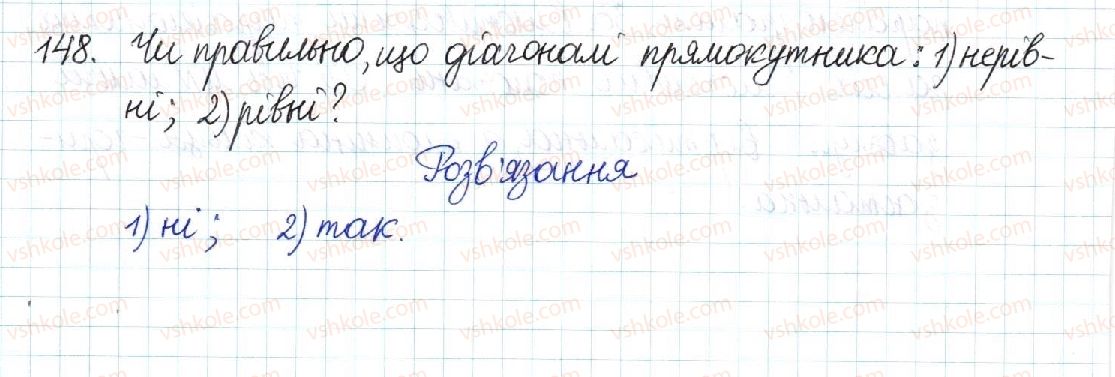 148. Чи правильно, що діагоналі прямокутника: 1) нерів-
ні; 2) рівні?
Розв'язання
1) ні; 2) так.